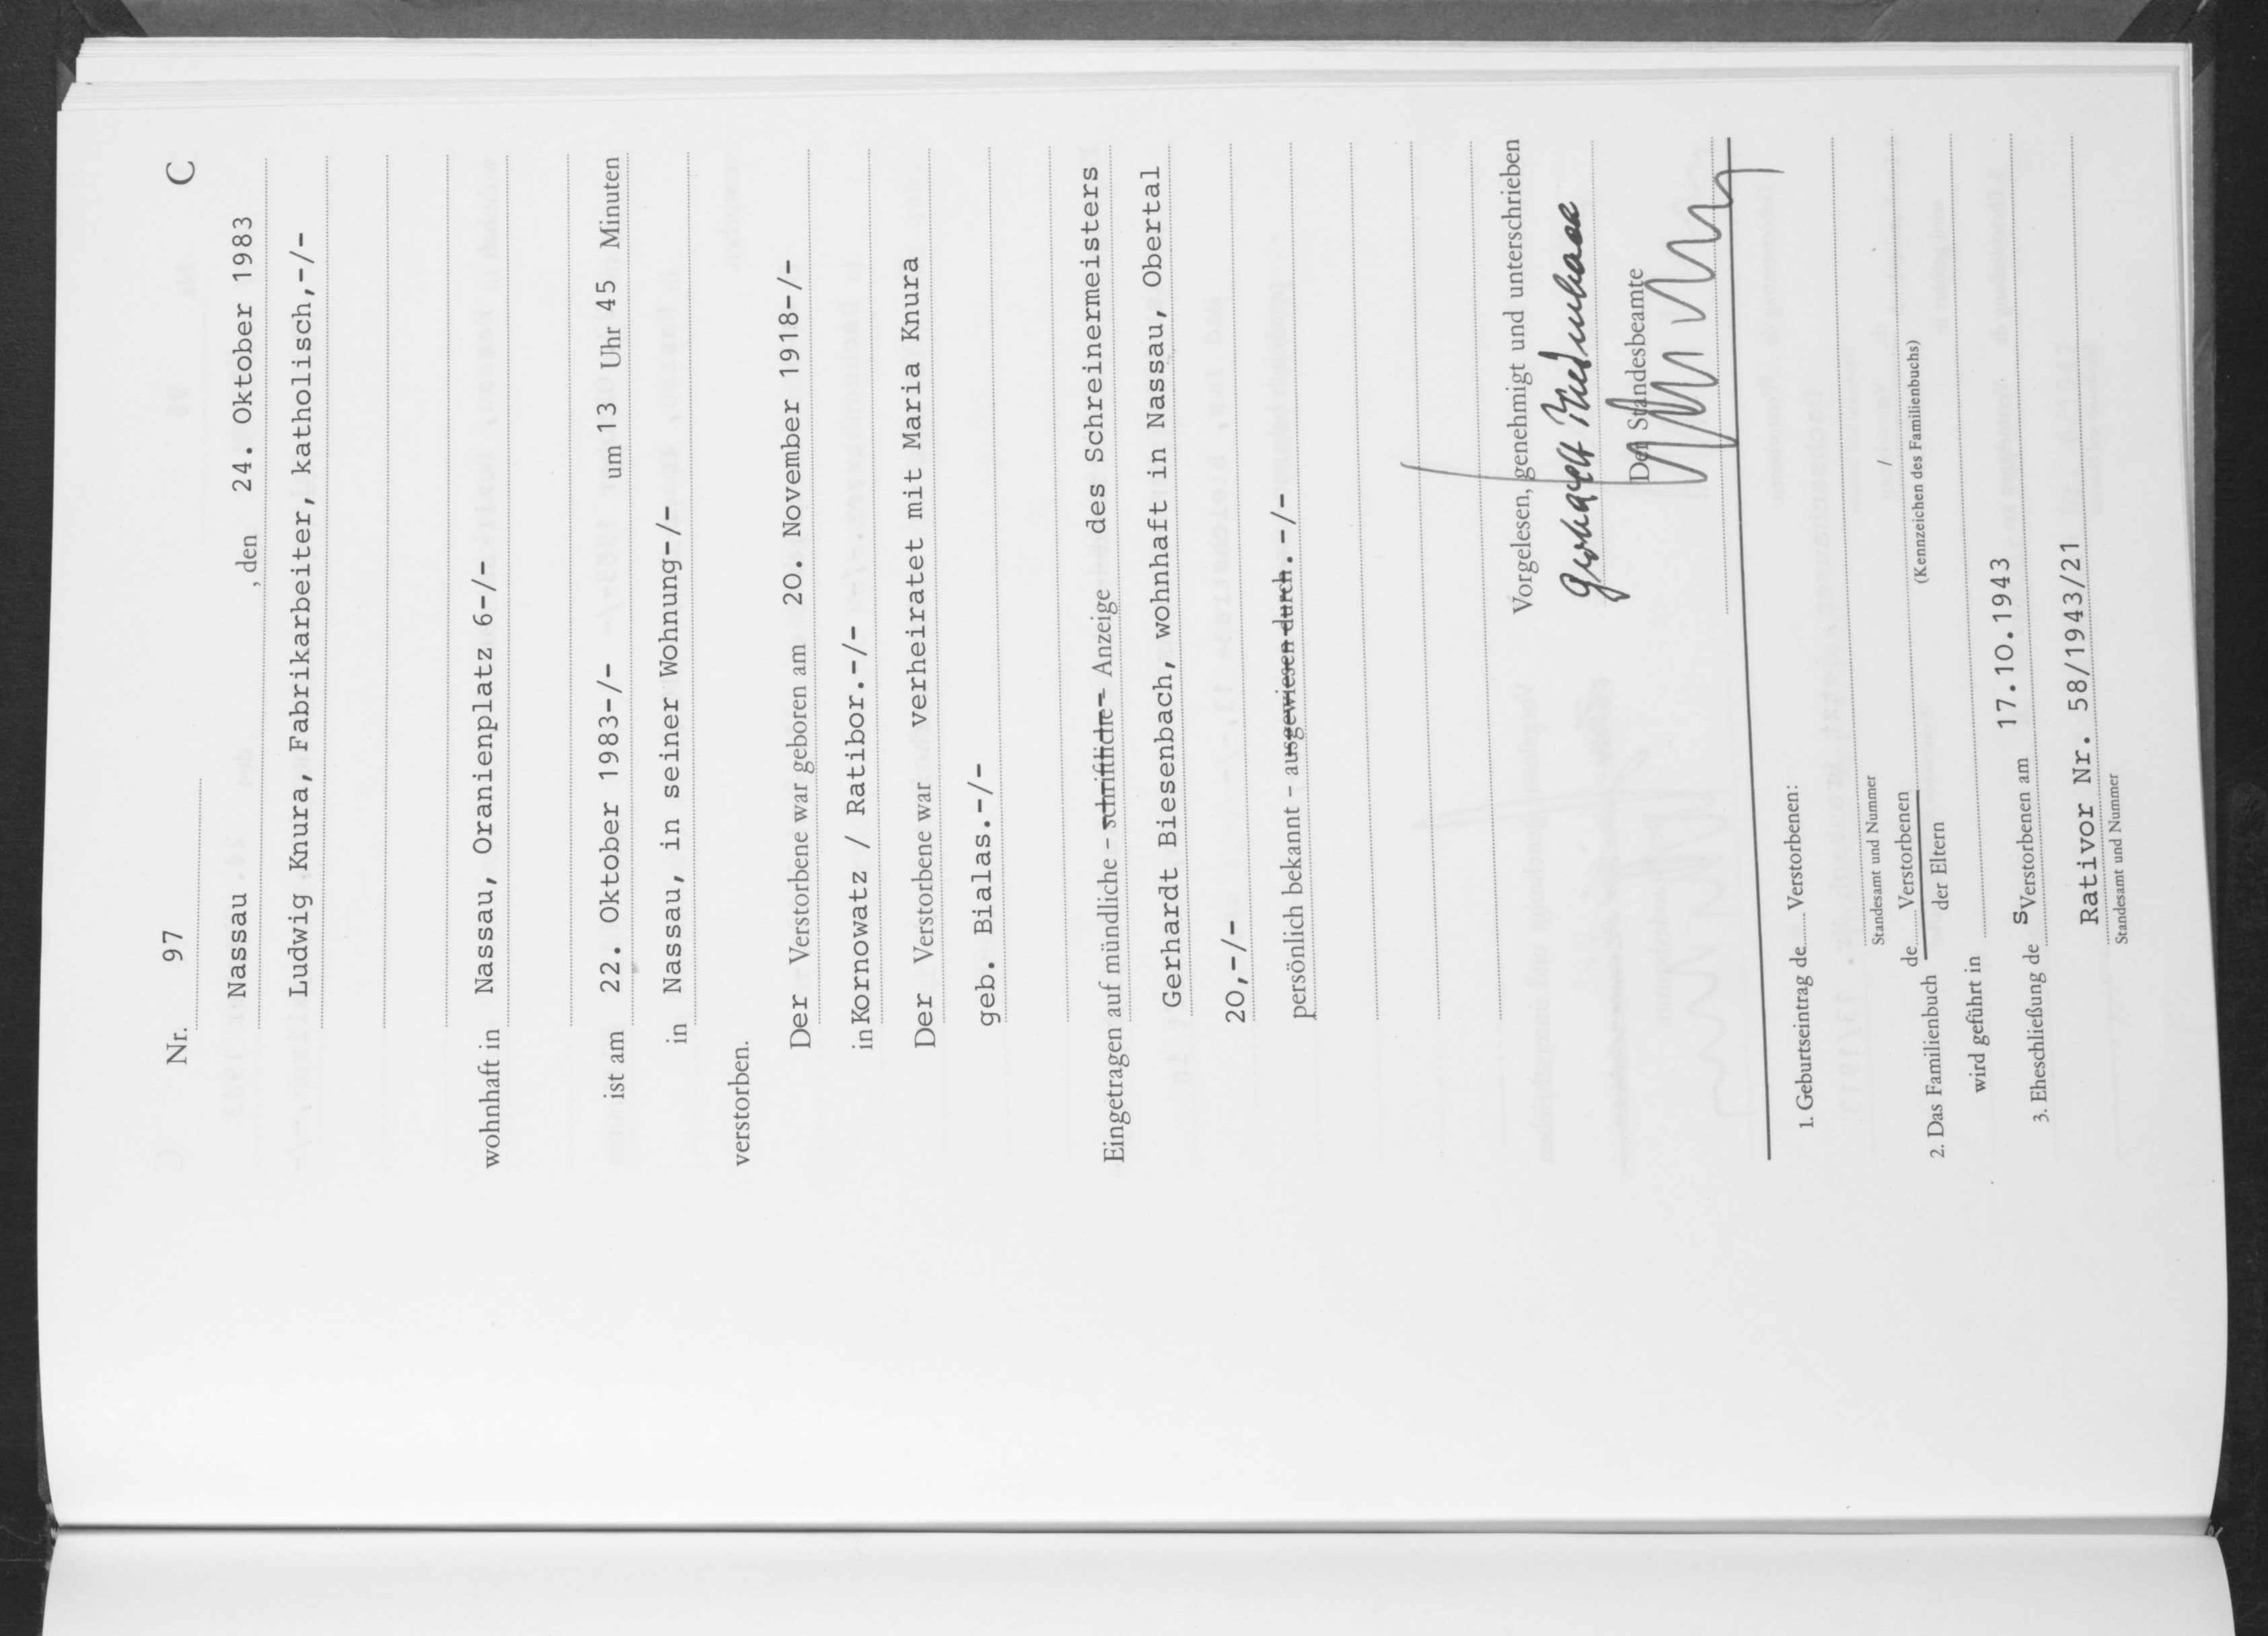 Nr. 97 C
Nassau, den 24. Oktober 1983
Ludwig Knura, Fabrikarbeiter, katholisch,-/-
wohnhaft in Nassau, Oranienplatz 6-/-
ist am 22. Oktober 1983-/- um 13 Uhr 45 Minuten
in Nassau, in seiner Wohnung-/-
verstorben.
Der Verstorbene war geboren am 20. November 1918-/-
in Kornowatz / Ratibor.-/-
Der Verstorbene war verheiratet mit Maria Knura
geb. Bialas.-/-
Eingetragen auf mündliche - schriftliche - Anzeige des Schreinermeisters
Gerhardt Biesenbach, wohnhaft in Nassau, Obertal
20,-/-
persönlich bekannt - ausgewiesen durch.-/-
Vorgelesen, genehmigt und unterschrieben
Gerhardt Biesenbach
Der Standesbeamte
1. Geburtseintrag de Verstorbenen:
Standesamt und Nummer
2. Das Familienbuch de Verstorbenen /
der Eltern
(Kennzeichen des Familienbuchs)
wird geführt in
3. Eheschließung des Verstorbenen am 17.10.1943
Rativor Nr. 58/1943/21
Standesamt und Nummer